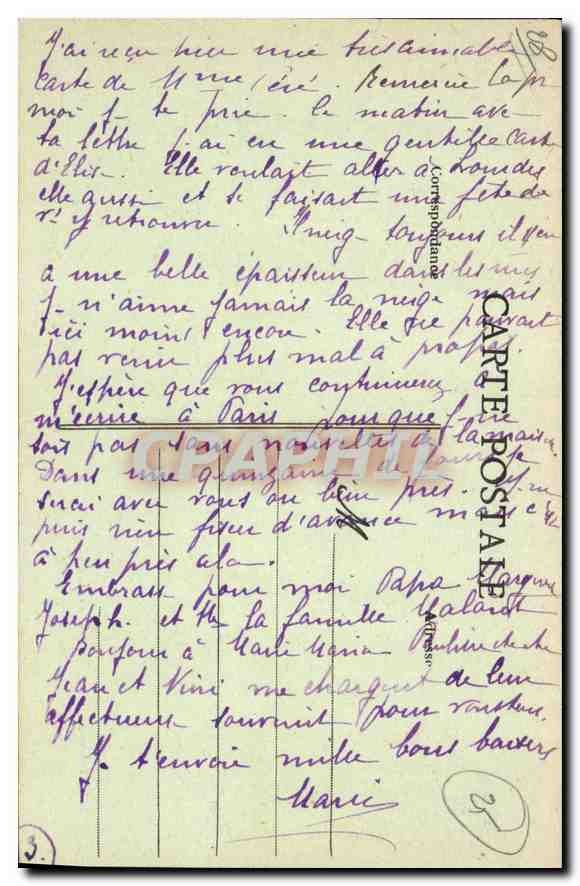 28
J'ai reçu hier une très aimable
carte de Mme Céré. Remercie la pr
moi j te prie. Ce matin ave
ta lettre j'ai eu une gentille carte
d'Elis. Elle voulait aller à Lourdes
elle aussi et se faisait une fête de
t'y retrouver. Il neig toujours il y en
a une belle épaisseur dans les rues
J n'aime jamais la neige mais
ici moins encore. Elle ne pouvait
pas venir plus mal à propos.
J'espère que vous continuerez
m'écrire à Paris pour que j ne
sois pas sans nouvelles de la maison.
Dans une quinzaine de jours je
serai avec vous ou bien près. J ne
puis rien fixer d'avance mais c'est
à peu près cela.
Embrass pour moi Papa
Joseph. et tte la famille Malardt
Bonjour à Marie Maria
Jean et Nini me chargent de leurs
affectueux souvenirs pour vous tous.
J t'envoie mille bons baisers
Marie
25
3.
CARTE POSTALE
Correspondance
Adresse
CPAPHIL